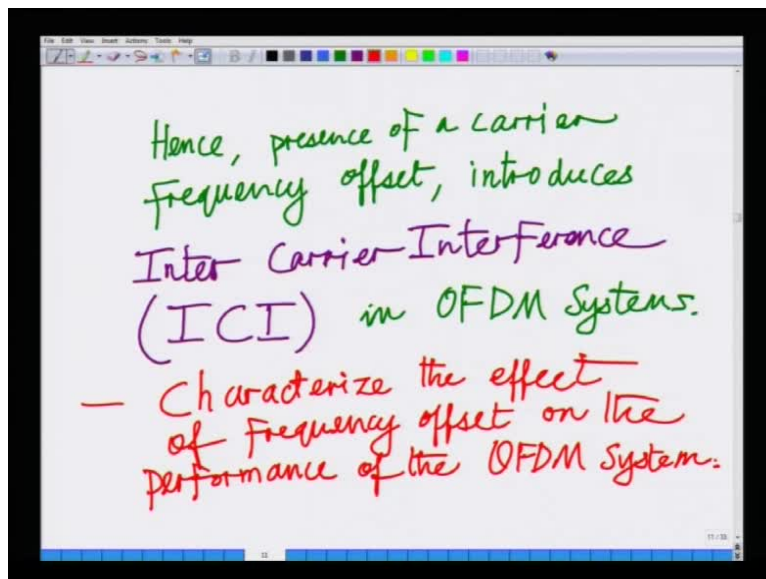 File Edit View Insert Actions Tools Help
Hence, presence of a carrier
frequency offset, introduces
Inter Carrier Interference
(ICI) in OFDM Systems.
— Characterize the effect
of Frequency offset on the
performance of the OFDM System.